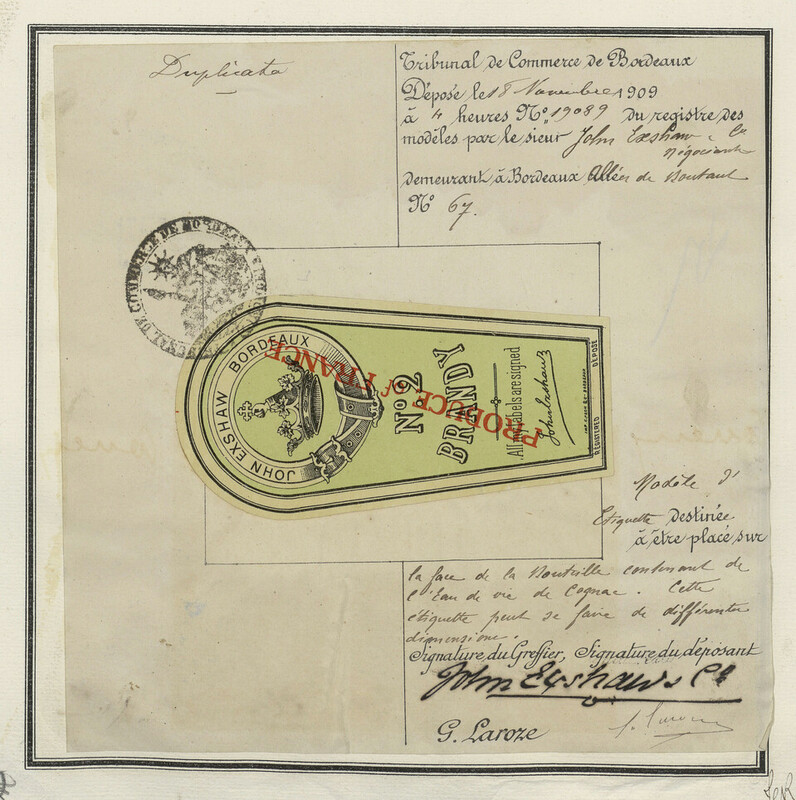 Duplicata
Tribunal de Commerce de Bordeaux
Déposé le 18 Novembre 1909
à 4 heures No. 19089 du registre des
modèles par le sieur John Exshaw & Co
Négociants
demeurant à Bordeaux Allées de Boutaut
No 67.
TRIBUNAL DE COMMERCE DE BORDEAUX
JOHN EXSHAW BORDEAUX
No. 2
BRANDY
PRODUCE of FRANCE
All my Labels are signed
John Exshaw
REGISTERED DÉPOSÉ
Modèle d'
Etiquette destinée
à être placé sur
la face de la Bouteille contenant de
l'Eau de vie de Cognac. Cette
étiquette peut se faire de différentes
dimensions.
Signature du Greffier, Signature du déposant
John Exshaw & Co
G. Laroze